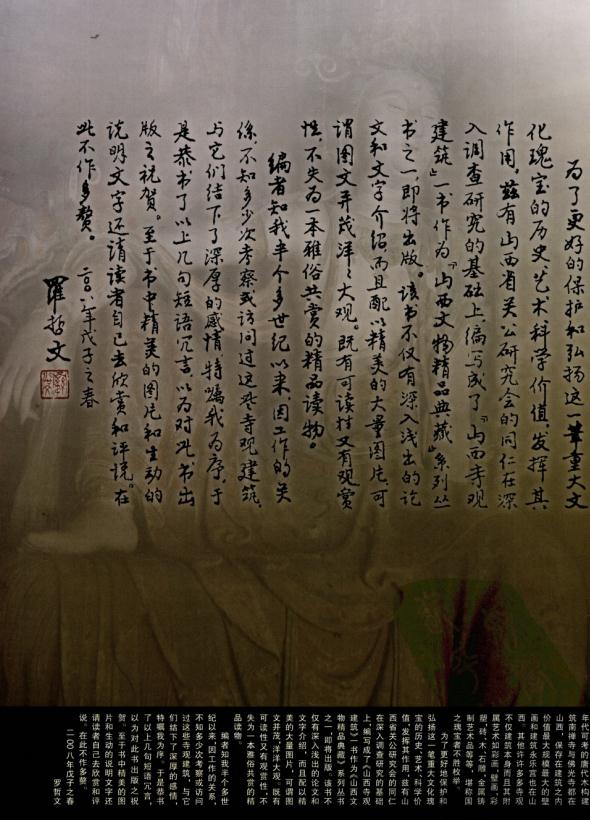 为了更好的保护和弘扬这一笔重大文
化瑰宝的历史艺术科学价值,发挥其
作用,兹有山西省关公研究会的同仁在深
入调查研究的基础上,编写成了《山西寺观
建筑》一书作为《山西文物精品典藏》系列丛
书之一,即将出版。该书不仅有深入浅出的论
文和文字介绍,而且配以精美的大量图片,可
谓图文并茂洋洋大观。既有可读性又有观赏
性,不失为一本雅俗共赏的精品读物。
编者知我半个多世纪以来,因工作的关
系,不知多少次考察或访问过这些寺观建筑,
与它们结下了深厚的感情,特嘱我为序。于
是恭书了以上几句短语冗言,以为对此书出
版之祝贺。至于书中精美的图片和生动的
说明文字还请读者自己去欣赏和评说。在
此不作多赘。
二〇〇八年戊子之春
罗哲文
年代可考的唐代木构建
筑南禅寺与佛光寺都在
山西,保存在建筑之内
价值之高规模最大的壁
画和建筑永乐宫也在山
西。其他许许多多寺观
不仅建筑本身而且其附
属艺术如彩画、壁画、彩
塑,砖、木、石雕,金属铸
制艺术品等等,堪称国
之瑰宝者不胜枚举。
为了更好地保护和
弘扬这一笔重大文化瑰
宝的历史、艺术、科学价
值,发挥其作用,兹有山
西省关公研究会的同仁
在深入调查研究的基础
上,编写成了《山西寺观
建筑》一书作为《山西文
物精品典藏》系列丛书
之一,即将出版。该书不
仅有深入浅出的论文和
文字介绍,而且配以精
美的大量图片,可谓图
文并茂,洋洋大观。既有
可读性又有观赏性,不
失为一本雅俗共赏的精
品读物。
编者知我半个多世
纪以来,因工作的关系,
不知多少次考察或访问
过这些寺观建筑,与它
们结下了深厚的感情,
特嘱我为序。于是恭书
了以上几句短语冗言,
以为对此书出版之祝
贺。至于书中精美的图
片和生动的说明文字还
请读者自己去欣赏和评
说。在此不作多赘。
罗哲文
二〇〇八年戊子之春